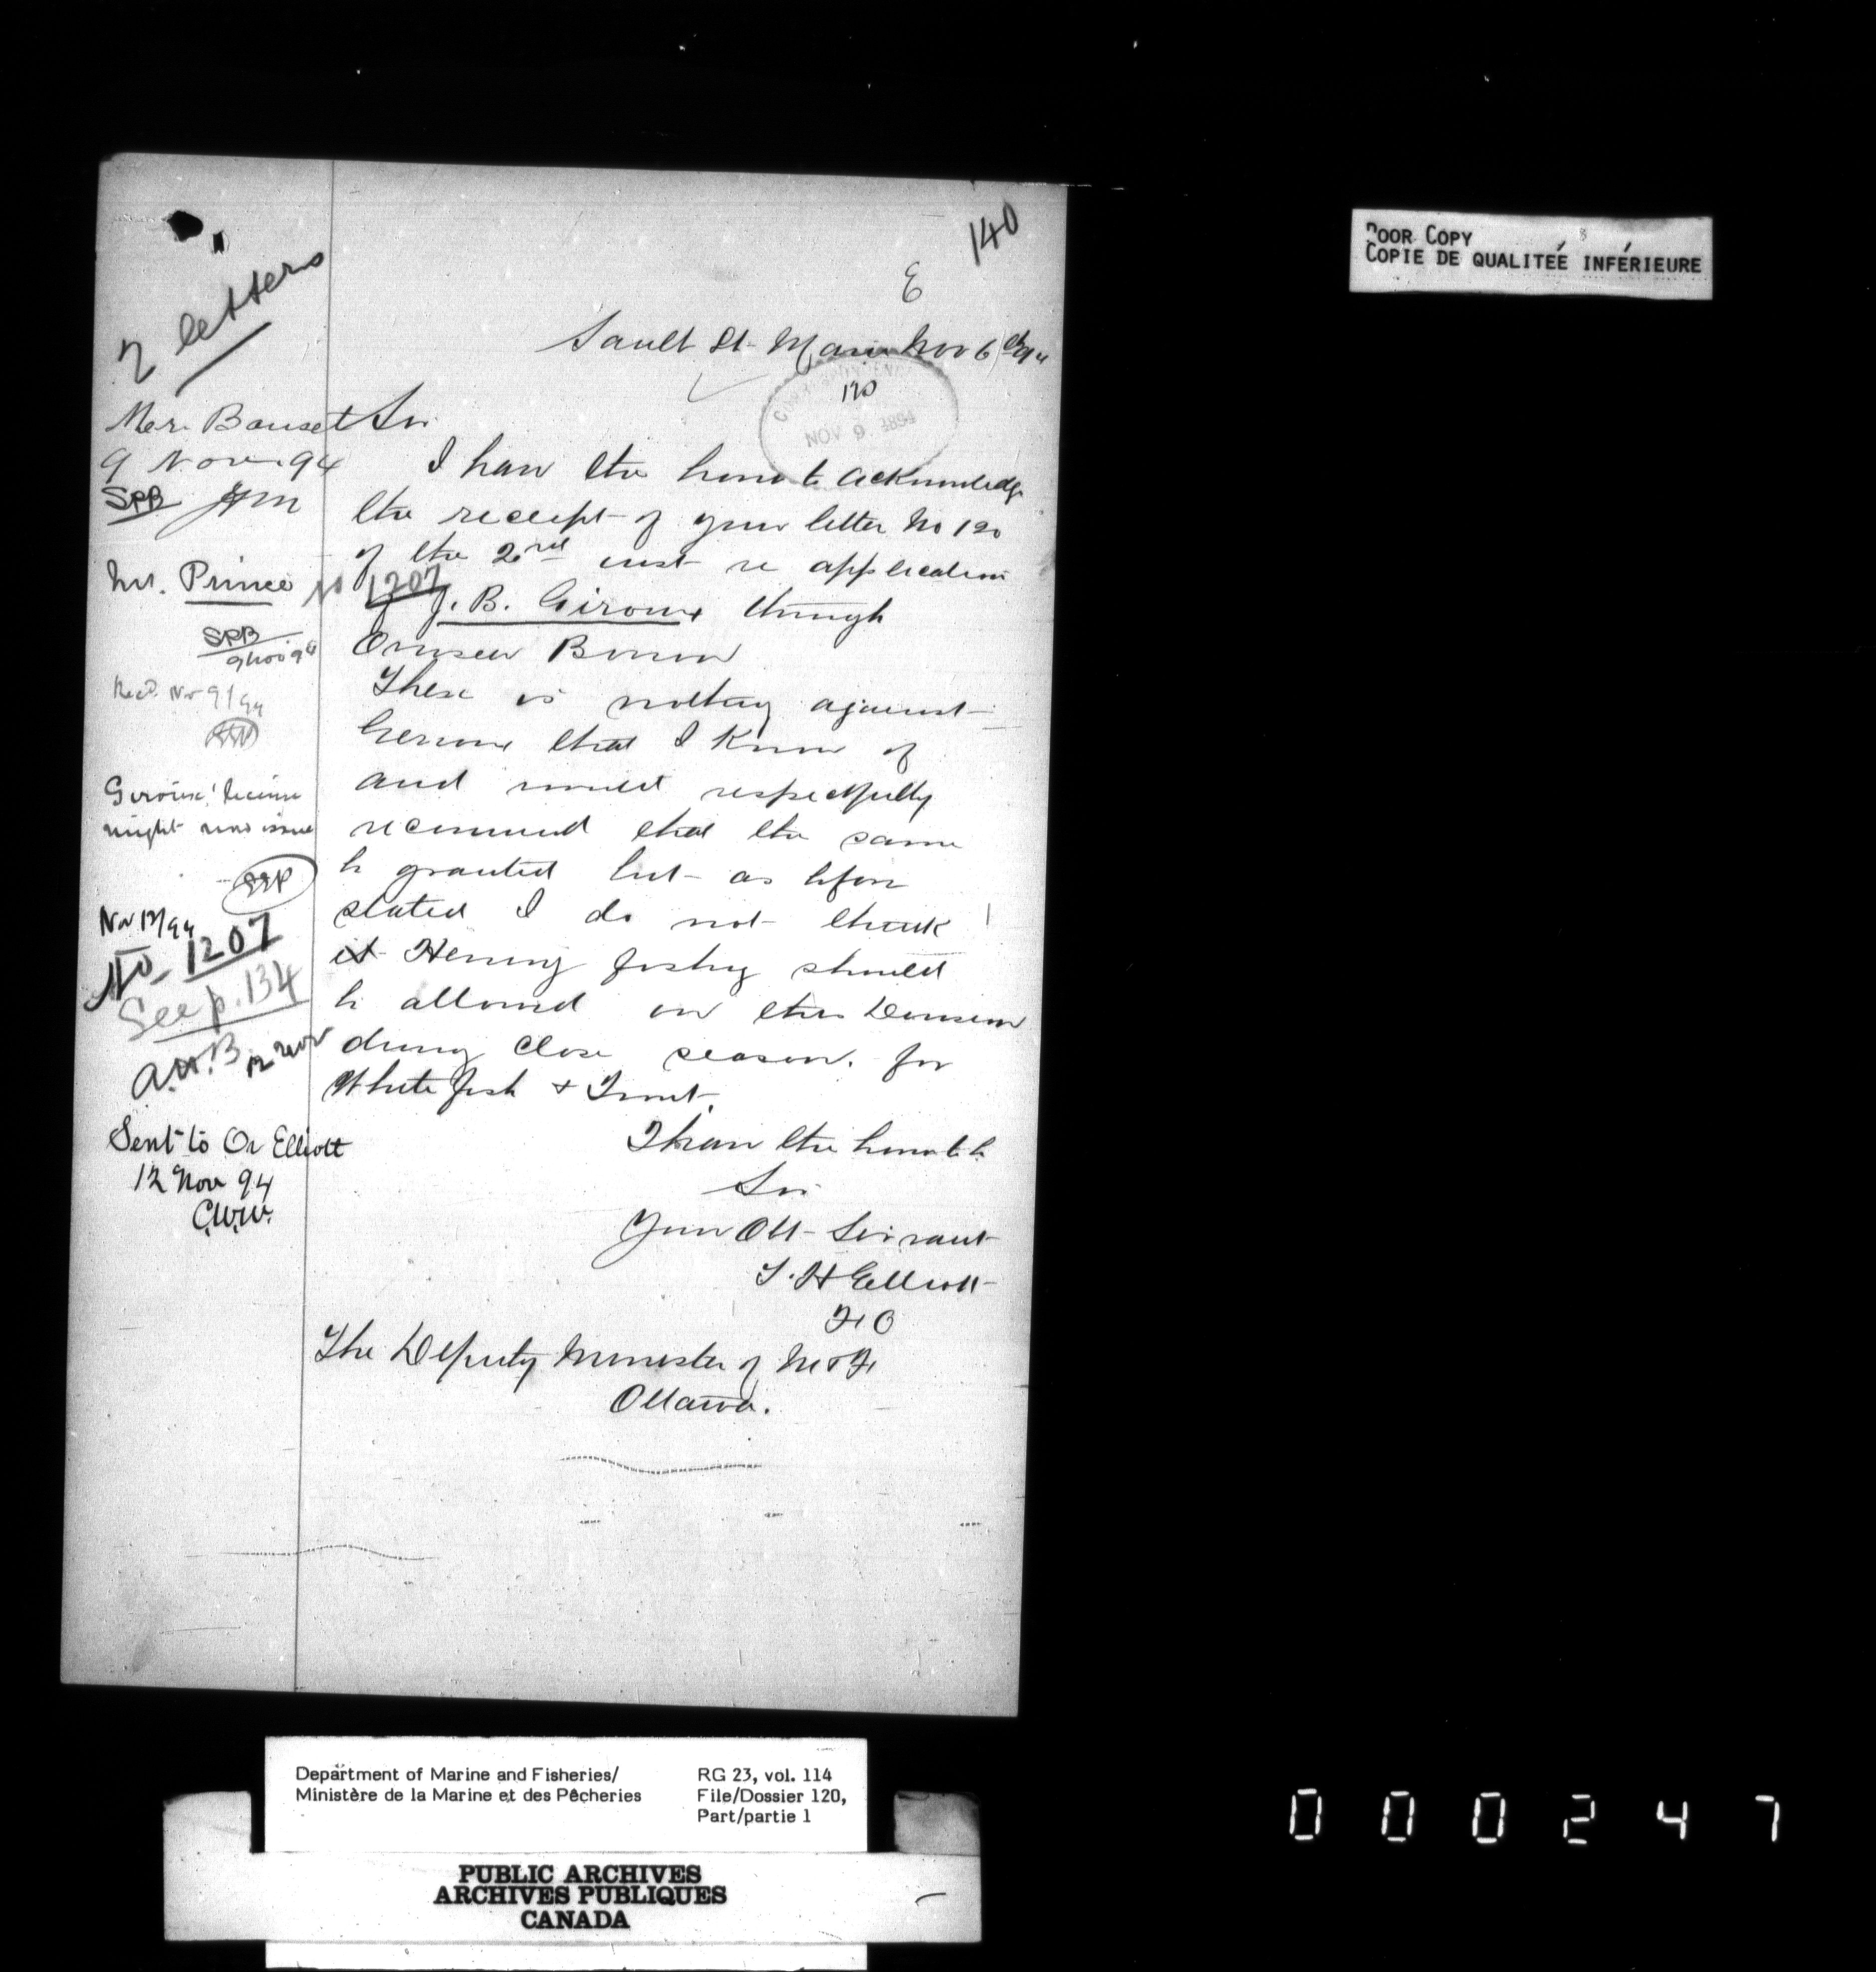 140
E
2 letters
Sault St Marie Nov 6th/94
120
NOV 9 1894
Mr. Bauset
9 Nov. 94
SPB
Sir
I have the honor to acknowledge
the receipt of your letter No 120
of the 2nd inst re application
Mr. Prince
No 1207
of J. B. Giroux through
SPB
9 Nov 94
Overseer
There is nothing against
Recd. Nov 9/94
Giroux that I know of
and would respectfully
Giroux' license
might now issue
recommend that the same
be granted but as before
stated I do not think
Nov 12/94
No 1207
See p. 134
it Herring fishing should
be allowed in this Division
during close season for
White fish & Trout.
A.W.B. 12 Nov
Sent to Or Elliott
12 Nov 94
C.W.W.
I have the honor to be
Sir
Your Obt Servant
T. H Elliott
F O
The Deputy Minister of M & F
Ottawa.
POOR COPY
COPIE DE QUALITEÉ INFÉRIEURE
Department of Marine and Fisheries/
Ministère de la Marine et des Pêcheries
RG 23, vol. 114
File/Dossier 120,
Part/partie 1
PUBLIC ARCHIVES
ARCHIVES PUBLIQUES
CANADA
000247